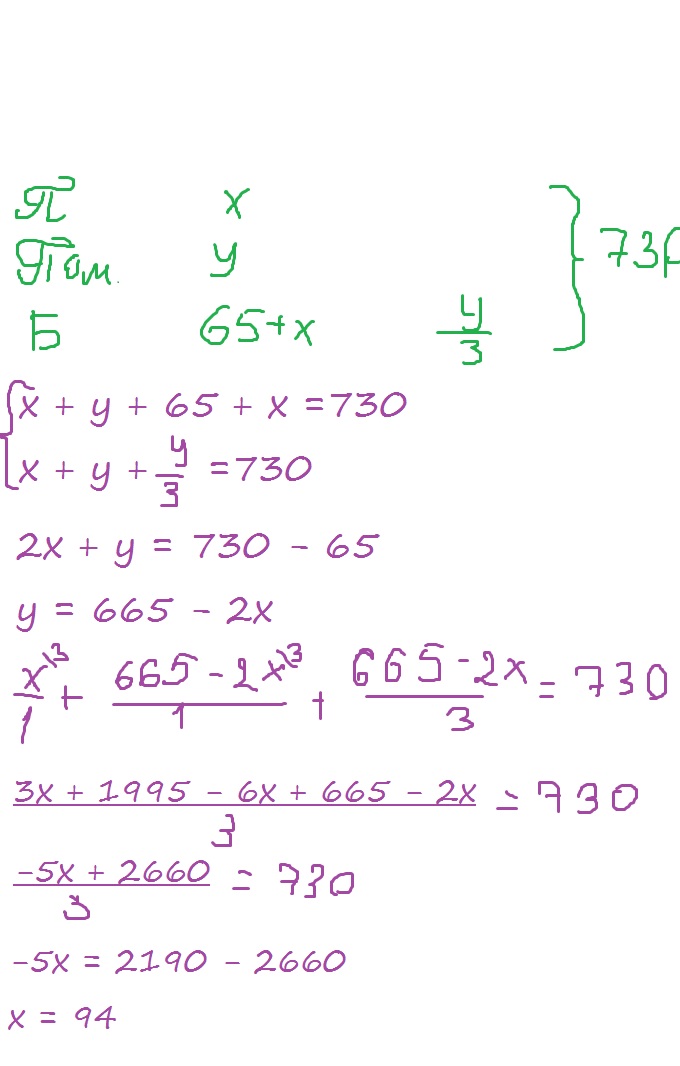 П x
Пом. y
Б 65+x y/3
} 73
x + y + 65 + x = 730
x + y + y/3 = 730
2x + y = 730 - 65
y = 665 - 2x
x\3/1 + 665-2x\3/1 + 665-2x/3 = 730
3x + 1995 - 6x + 665 - 2x/3 = 730
-5x + 2660/3 = 730
-5x = 2190 - 2660
x = 94